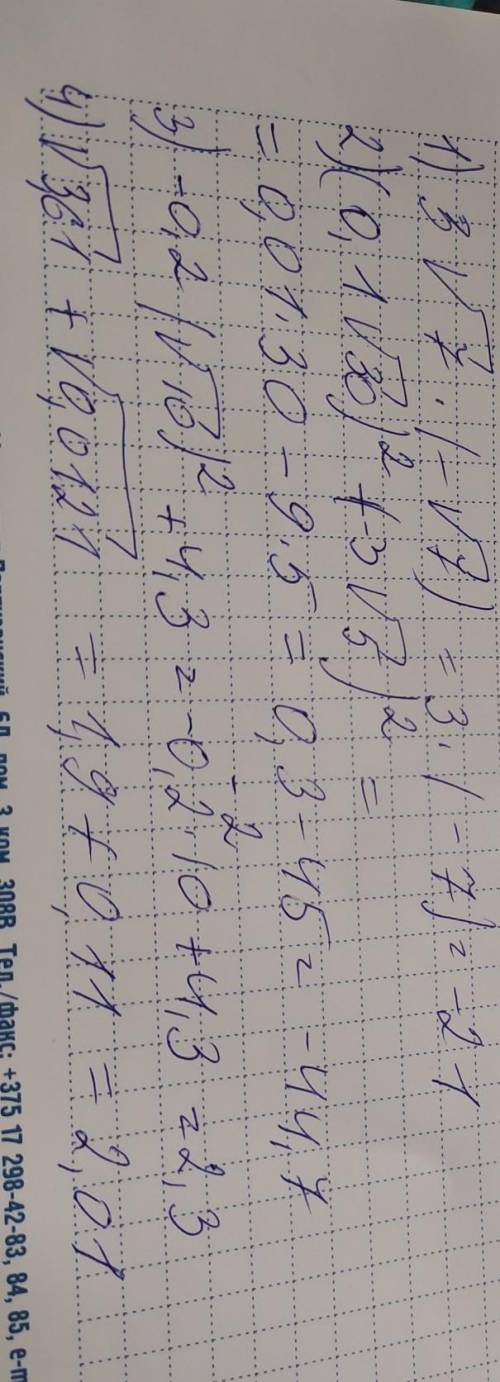 1) 3√7 · (-√7) = 3 · (-7) = -21
2) (0,1√30)² + (-3√5)² =
= 0,01·30 - 9·5 = 0,3 - 45 = -44,7
-2
3) -0,2 (√10)² + 4,3 = -0,2·10 + 4,3 = 2,3
4) √3,61 + √0,0121 = 1,9 + 0,11 = 2,01
дом 3 ком. 308В Тел./факс: +375 17 298-42-83, 84, 85, e-m